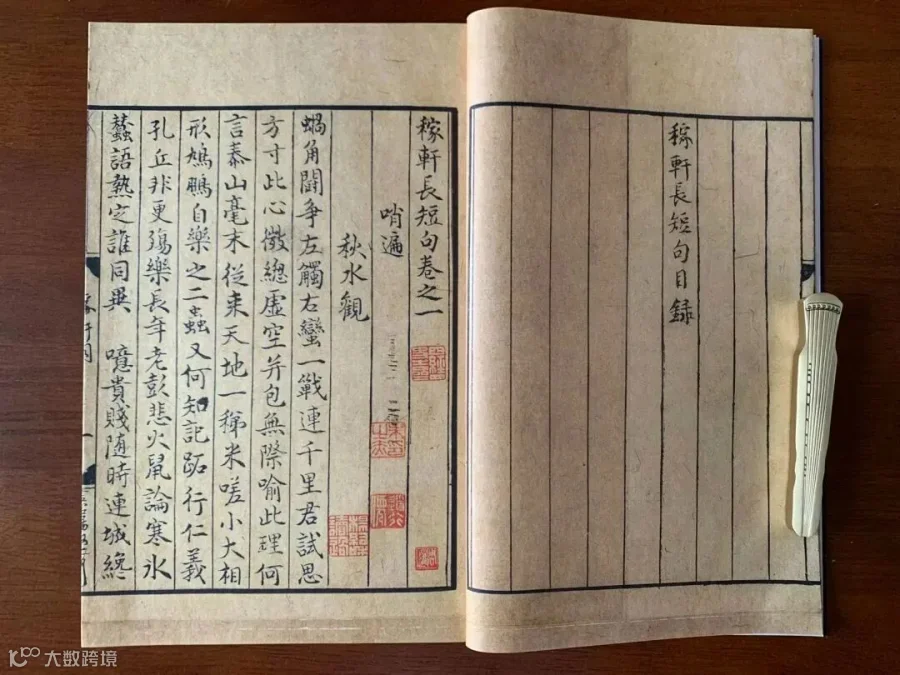 稼軒長短句目録
稼軒長短句卷之一
哨遍
秋水觀
蝸角鬭争左觸右蠻一戰連千里君試思
方寸此心微總虛空并包無際喻此理何
言泰山毫末從来天地一稊米嗟小大相
形鳩鵬自樂之二蟲又何知記跖行仁義
孔丘非更殤樂長年老彭悲火鼠論寒冰
蠶語熱定誰同異 噫貴賤随時連城纔
大数跨境